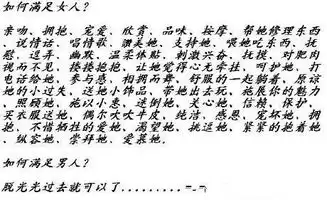 如何满足女人?
亲吻、拥抱、宠爱、欣赏、品味、按摩、帮她修理东西
、说情话、唱情歌、赞美她、支持她、喂她吃东西、抚
慰、逗弄、幽默、温柔体贴、刺激兴奋、抚摸、对肥肉
视而不见、搂搂抱抱、让她觉得心无牵挂、呵护她、打
电话给她、参与感、相拥而舞、舒服的一起躺着、原谅
她的小过失、送她小饰品、带她出去玩、施展你的魅力
、照顾她、施以小惠、迷倒她、关心她、信赖、保护、
买衣服送她、偶尔吹吹牛皮、纯洁、感恩、宠坏她、拥
抱、不惜牺牲的爱她、渴望她、挑逗她、紧紧的抱着她
、纵容她、崇拜她、爱慕她。
如何满足男人?
脱光光过去就可以了.........=.=